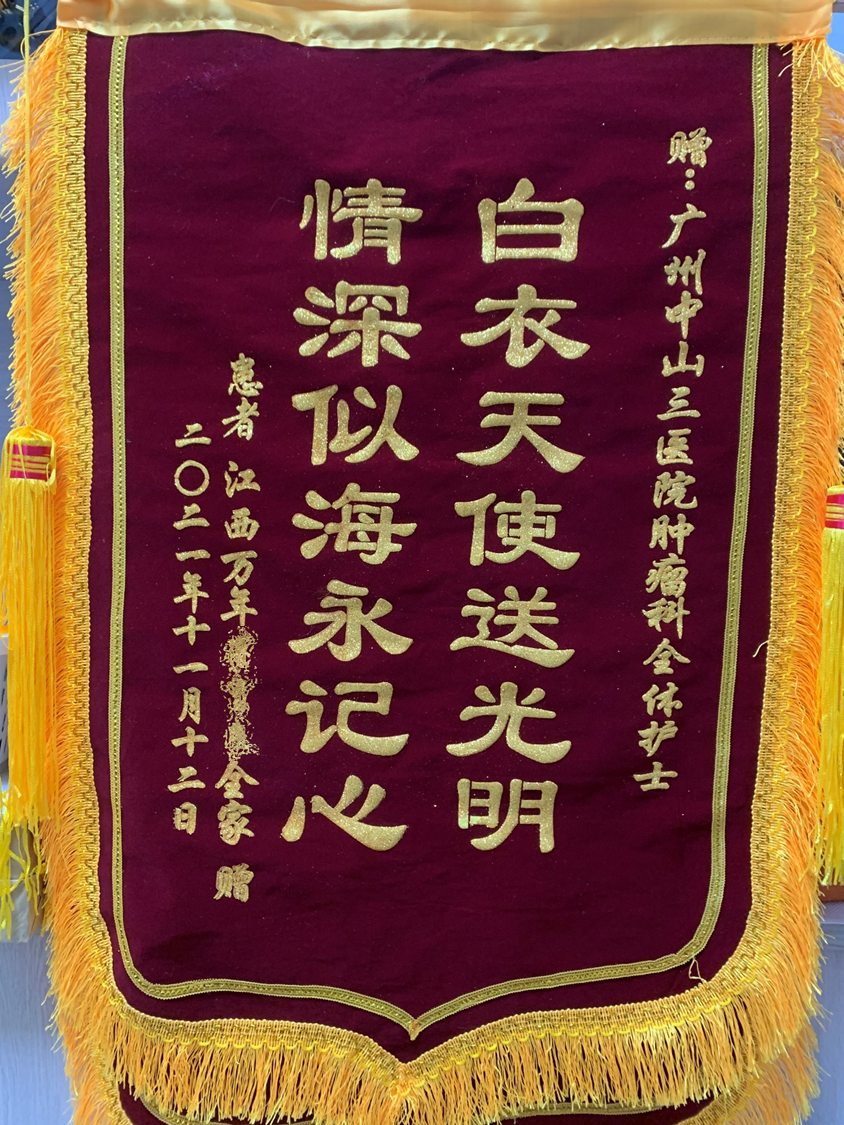 赠：广州中山三医院肿瘤科全体护士
白衣天使送光明
情深似海永记心
患者 江西万年全家 赠
二〇二一年十一月十二日